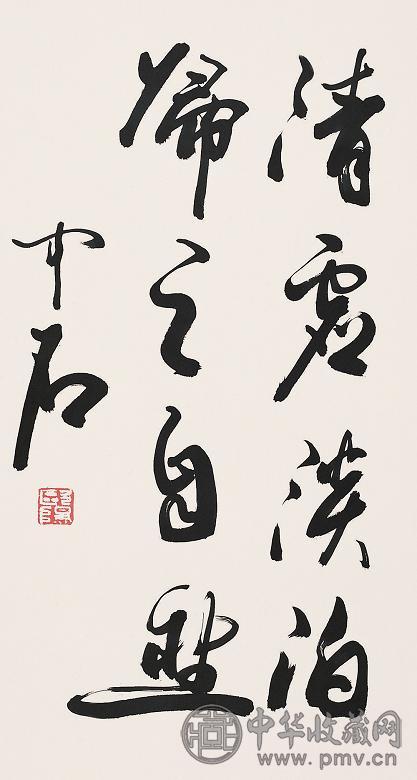 清虚淡泊
歸之自然
中石
中华收藏网
www.pmv.cn